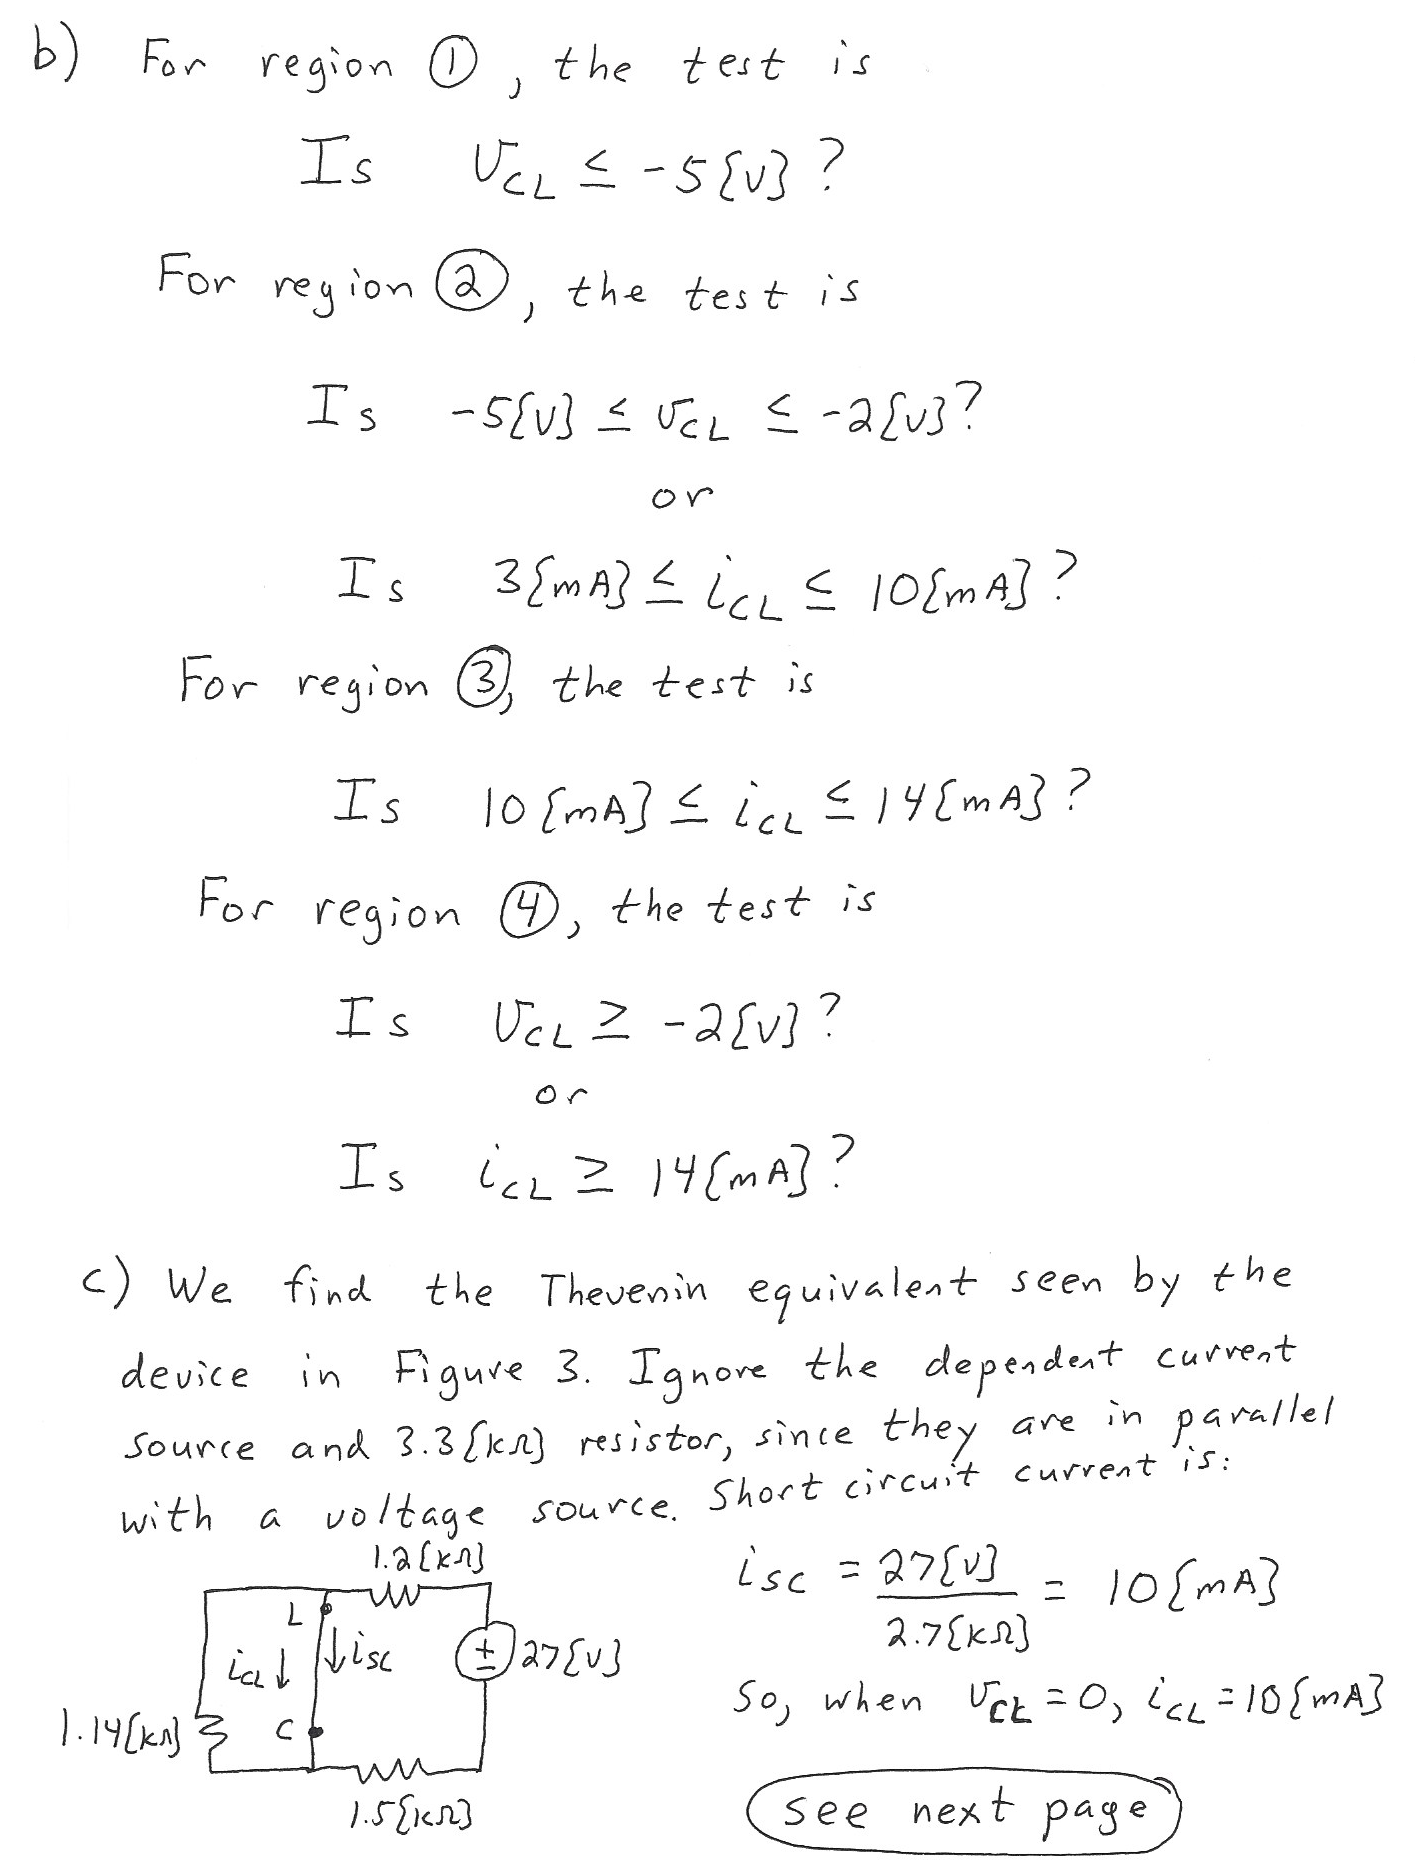 b) For region ①, the test is
Is v_CL ≤ -5{V}?
For region ②, the test is
Is -5{V} ≤ v_CL ≤ -2{V}?
or
Is 3{mA} ≤ i_CL ≤ 10{mA}?
For region ③, the test is
Is 10{mA} ≤ i_CL ≤ 14{mA}?
For region ④, the test is
Is v_CL ≥ -2{V}?
or
Is i_CL ≥ 14{mA}?
c) We find the Thevenin equivalent seen by the
device in Figure 3. Ignore the dependent current
source and 3.3{kΩ} resistor, since they are in parallel
with a voltage source. Short circuit current is:
1.2{kΩ}
L
i_CL ↓
↓ i_SC
±
27{V}
1.14{kΩ}
C
1.5{kΩ}
i_SC = 27{V} / 2.7{kΩ} = 10{mA}
So, when v_CL = 0, i_CL = 10{mA}
see next page